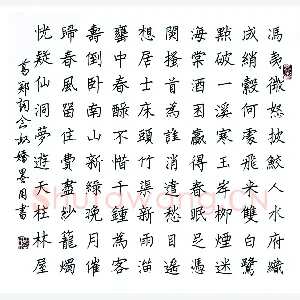 馮夷微怒鮫人水府織
成綃縠飛來雙白鷺
點破一溪寒玉岸柳煙迷
海棠酒困贏得春眠足憑
闌搔首為誰消遣愁目遙
想居士床頭竹渠新雨溜
甕中春醅不惜千鍾為客
壽倒臥南山新綠晚月催
歸春風留住費盡紗籠燭
恍疑仙洞夢遊天柱林屋
葛郯詞念奴嬌墨周書